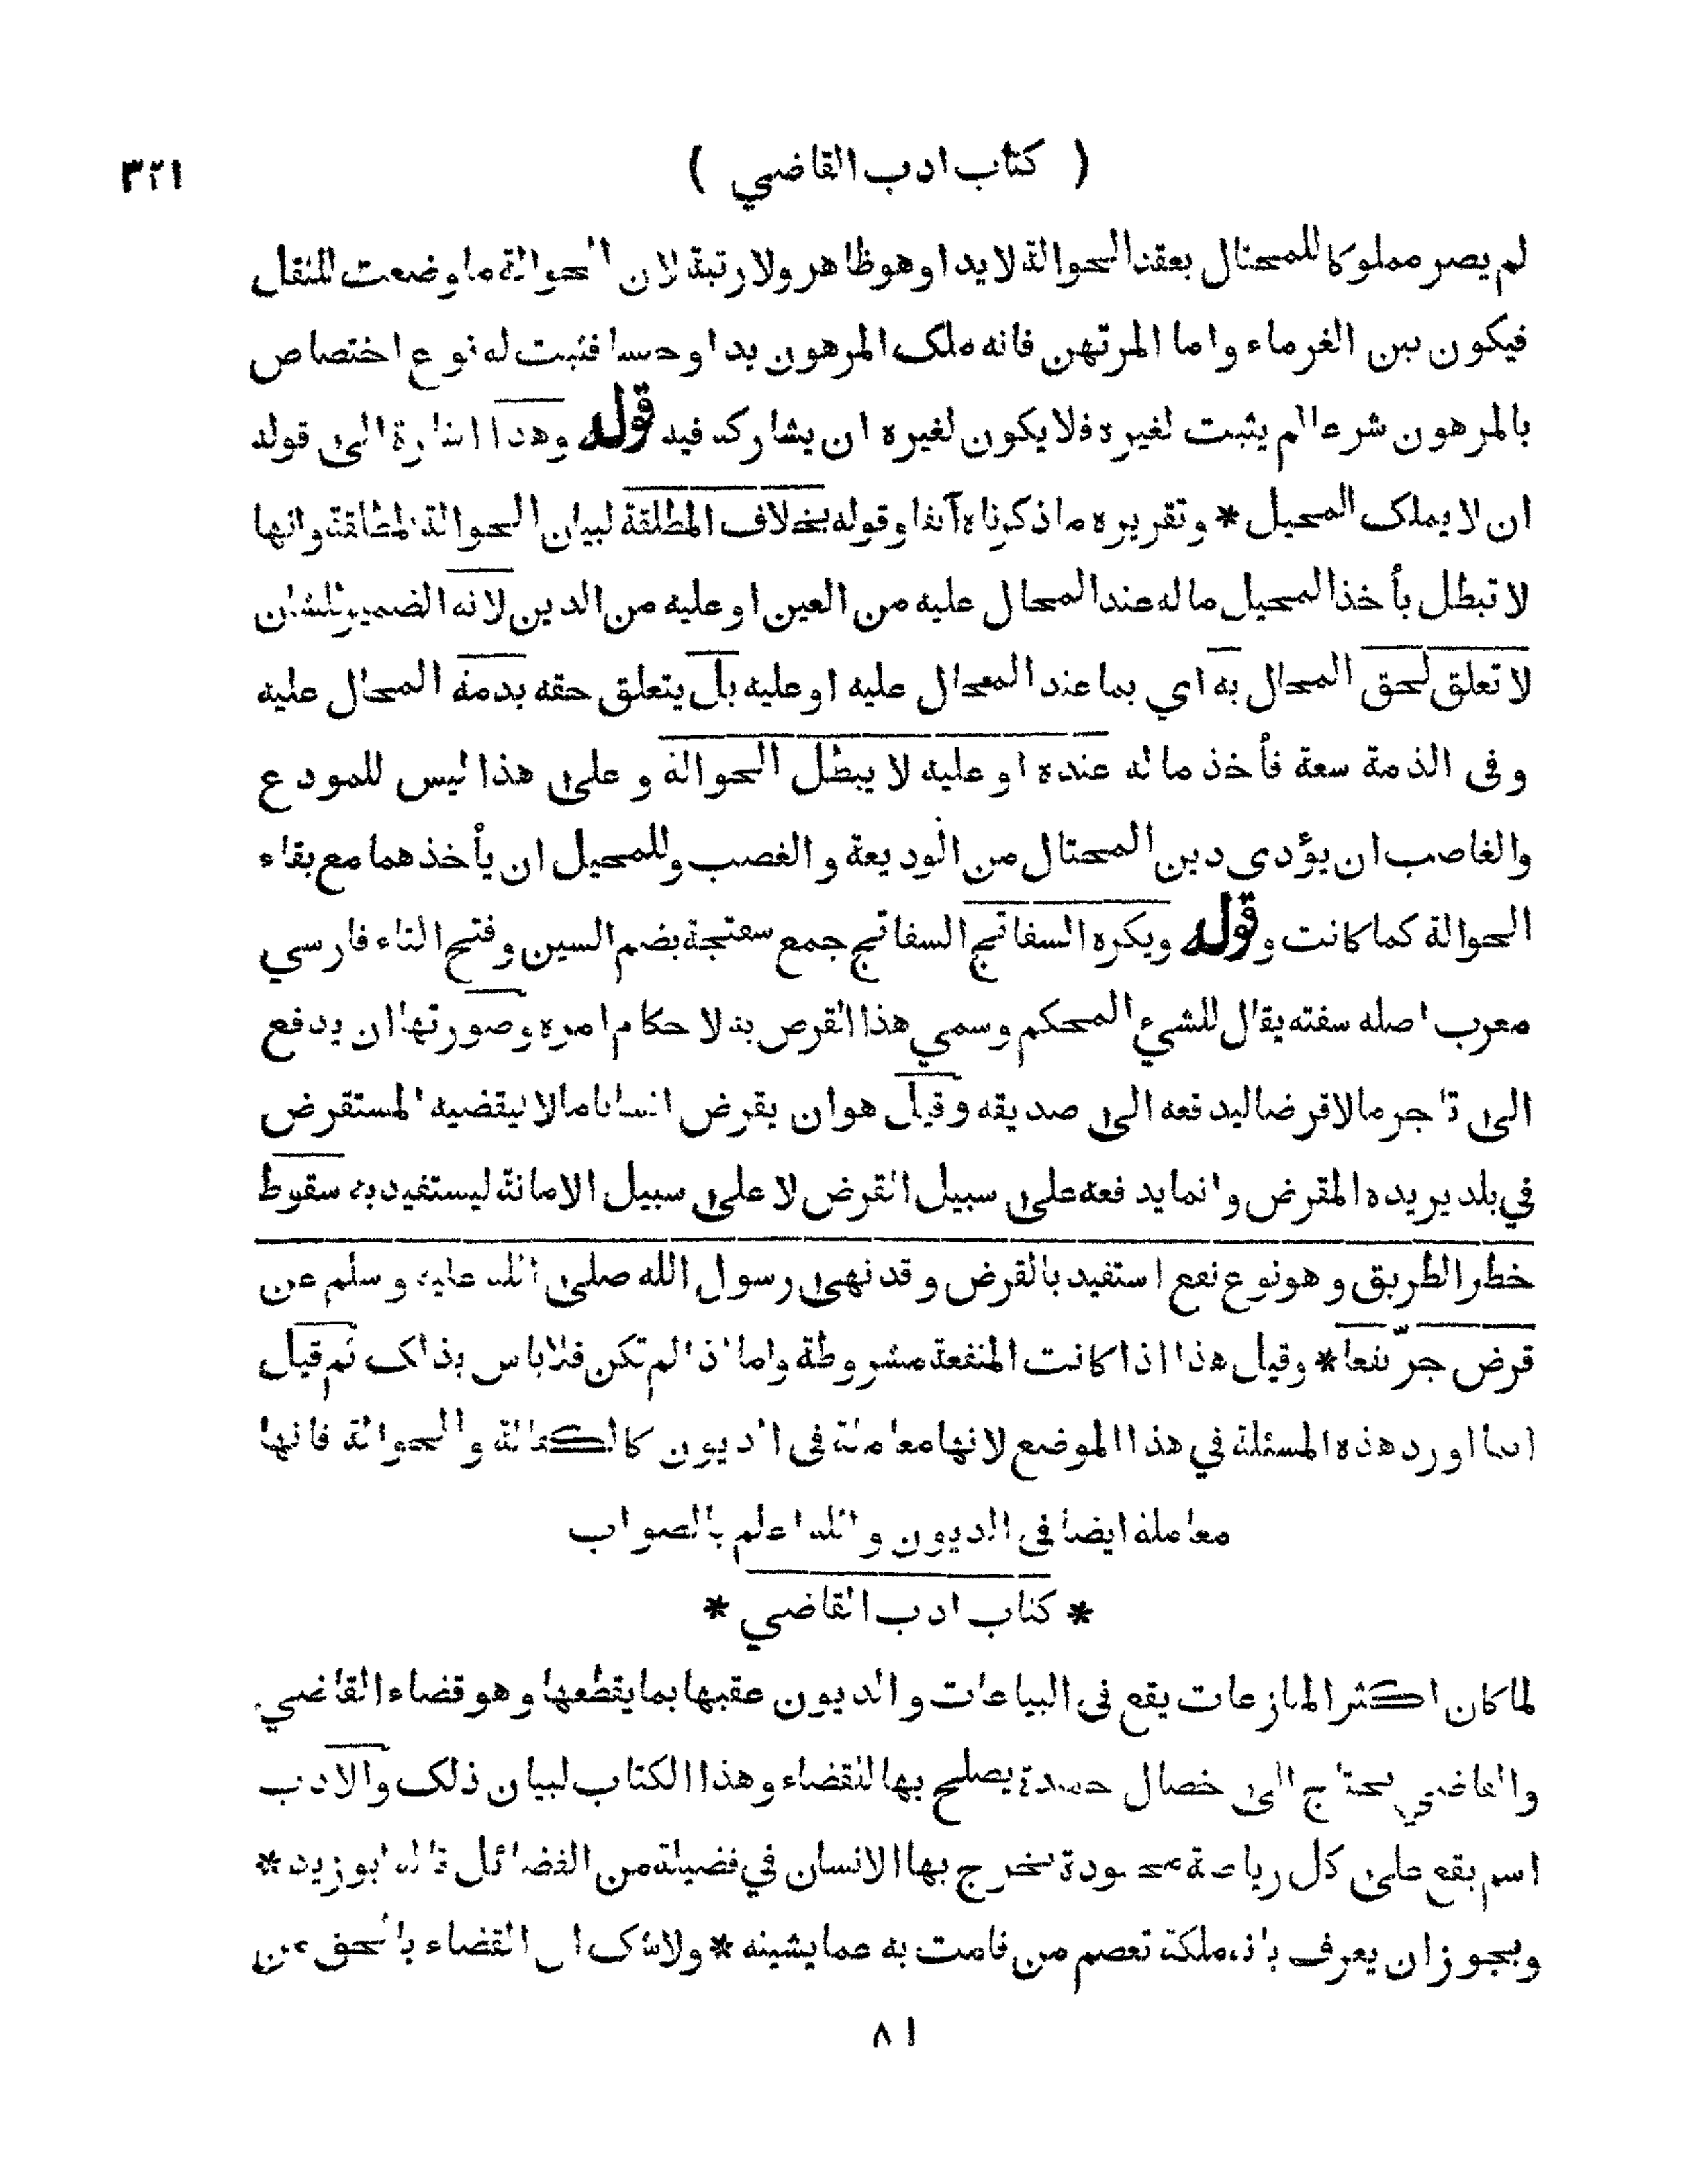 ( كتاب ادب القاضي ) ٣٢١
لم يصر مملوكا للمحتال بعقد الحوالة لا يدا وهو ظاهر ولا رقبة لان الحوالة ما وضعت للنقل
فيكون بين الغرماء واما المرتهن فانه ملك المرهون يدا وحبسا فثبت له نوع اختصاص
بالمرهون شرعا لم يثبت لغيره فلا يكون لغيره ان يشاركه فيه قوله وهذا اشارة الى قوله
ان لا يملك المحيل * وتقريره ما ذكرناه آنفا وقوله بخلاف المطلقة لبيان الحوالة المطلقة وانها
لا تبطل بأخذ المحيل ما له عند المحال عليه من العين او عليه من الدين لانه الضمير للشان
لا تعلق لحق المحال به اي بما عند المحال عليه او عليه بل يتعلق حقه بذمة المحال عليه
وفى الذمة سعة فأخذ ما له عنده او عليه لا يبطل الحوالة و على هذا ليس للمودع
والغاصب ان يؤدى دين المحتال من الوديعة و الغصب وللمحيل ان يأخذهما مع بقاء
الحوالة كما كانت و قوله ويكره السفاتج السفاتج جمع سفتجة بضم السين وفتح التاء فارسي
معرب اصله سفته يقال للشيء المحكم وسمي هذا القرض به لاحكام امره وصورتها ان يدفع
الى تاجر مالا قرضا ليدفعه الى صديقه وقيل هو ان يقرض انسانا مالا ليقضيه المستقرض
في بلد يريده المقرض وانما يدفعه على سبيل القرض لا على سبيل الامانة ليستفيد به سقوط
خطر الطريق و هو نوع نفع استفيد بالقرض و قد نهى رسول الله صلى الله عليه و سلم عن
قرض جرّ نفعا * وقيل هذا اذا كانت المنفعة مشروطة واما اذا لم تكن فلا باس بذلك ثم قيل
انما اورد هذه المسئلة في هذا الموضع لانها معاملة فى الديون كالكفالة والحوالة فانها
معاملة ايضا فى الديون و الله اعلم بالصواب
* كتاب ادب القاضي *
لما كان اكثر المنازعات يقع فى البياعات و الديون عقبها بما يقطعها و هو قضاء القاضي
والقاضي يحتاج الى خصال حميدة يصلح بها للقضاء وهذا الكتاب لبيان ذلك والادب
اسم يقع على كل رياضة محمودة يخرج بها الانسان في فضيلة من الفضائل قاله ابو زيد *
ويجوز ان يعرف بانه ملكة تعصم من قامت به عما يشينه * ولا شك ان القضاء بالحق من
٨١